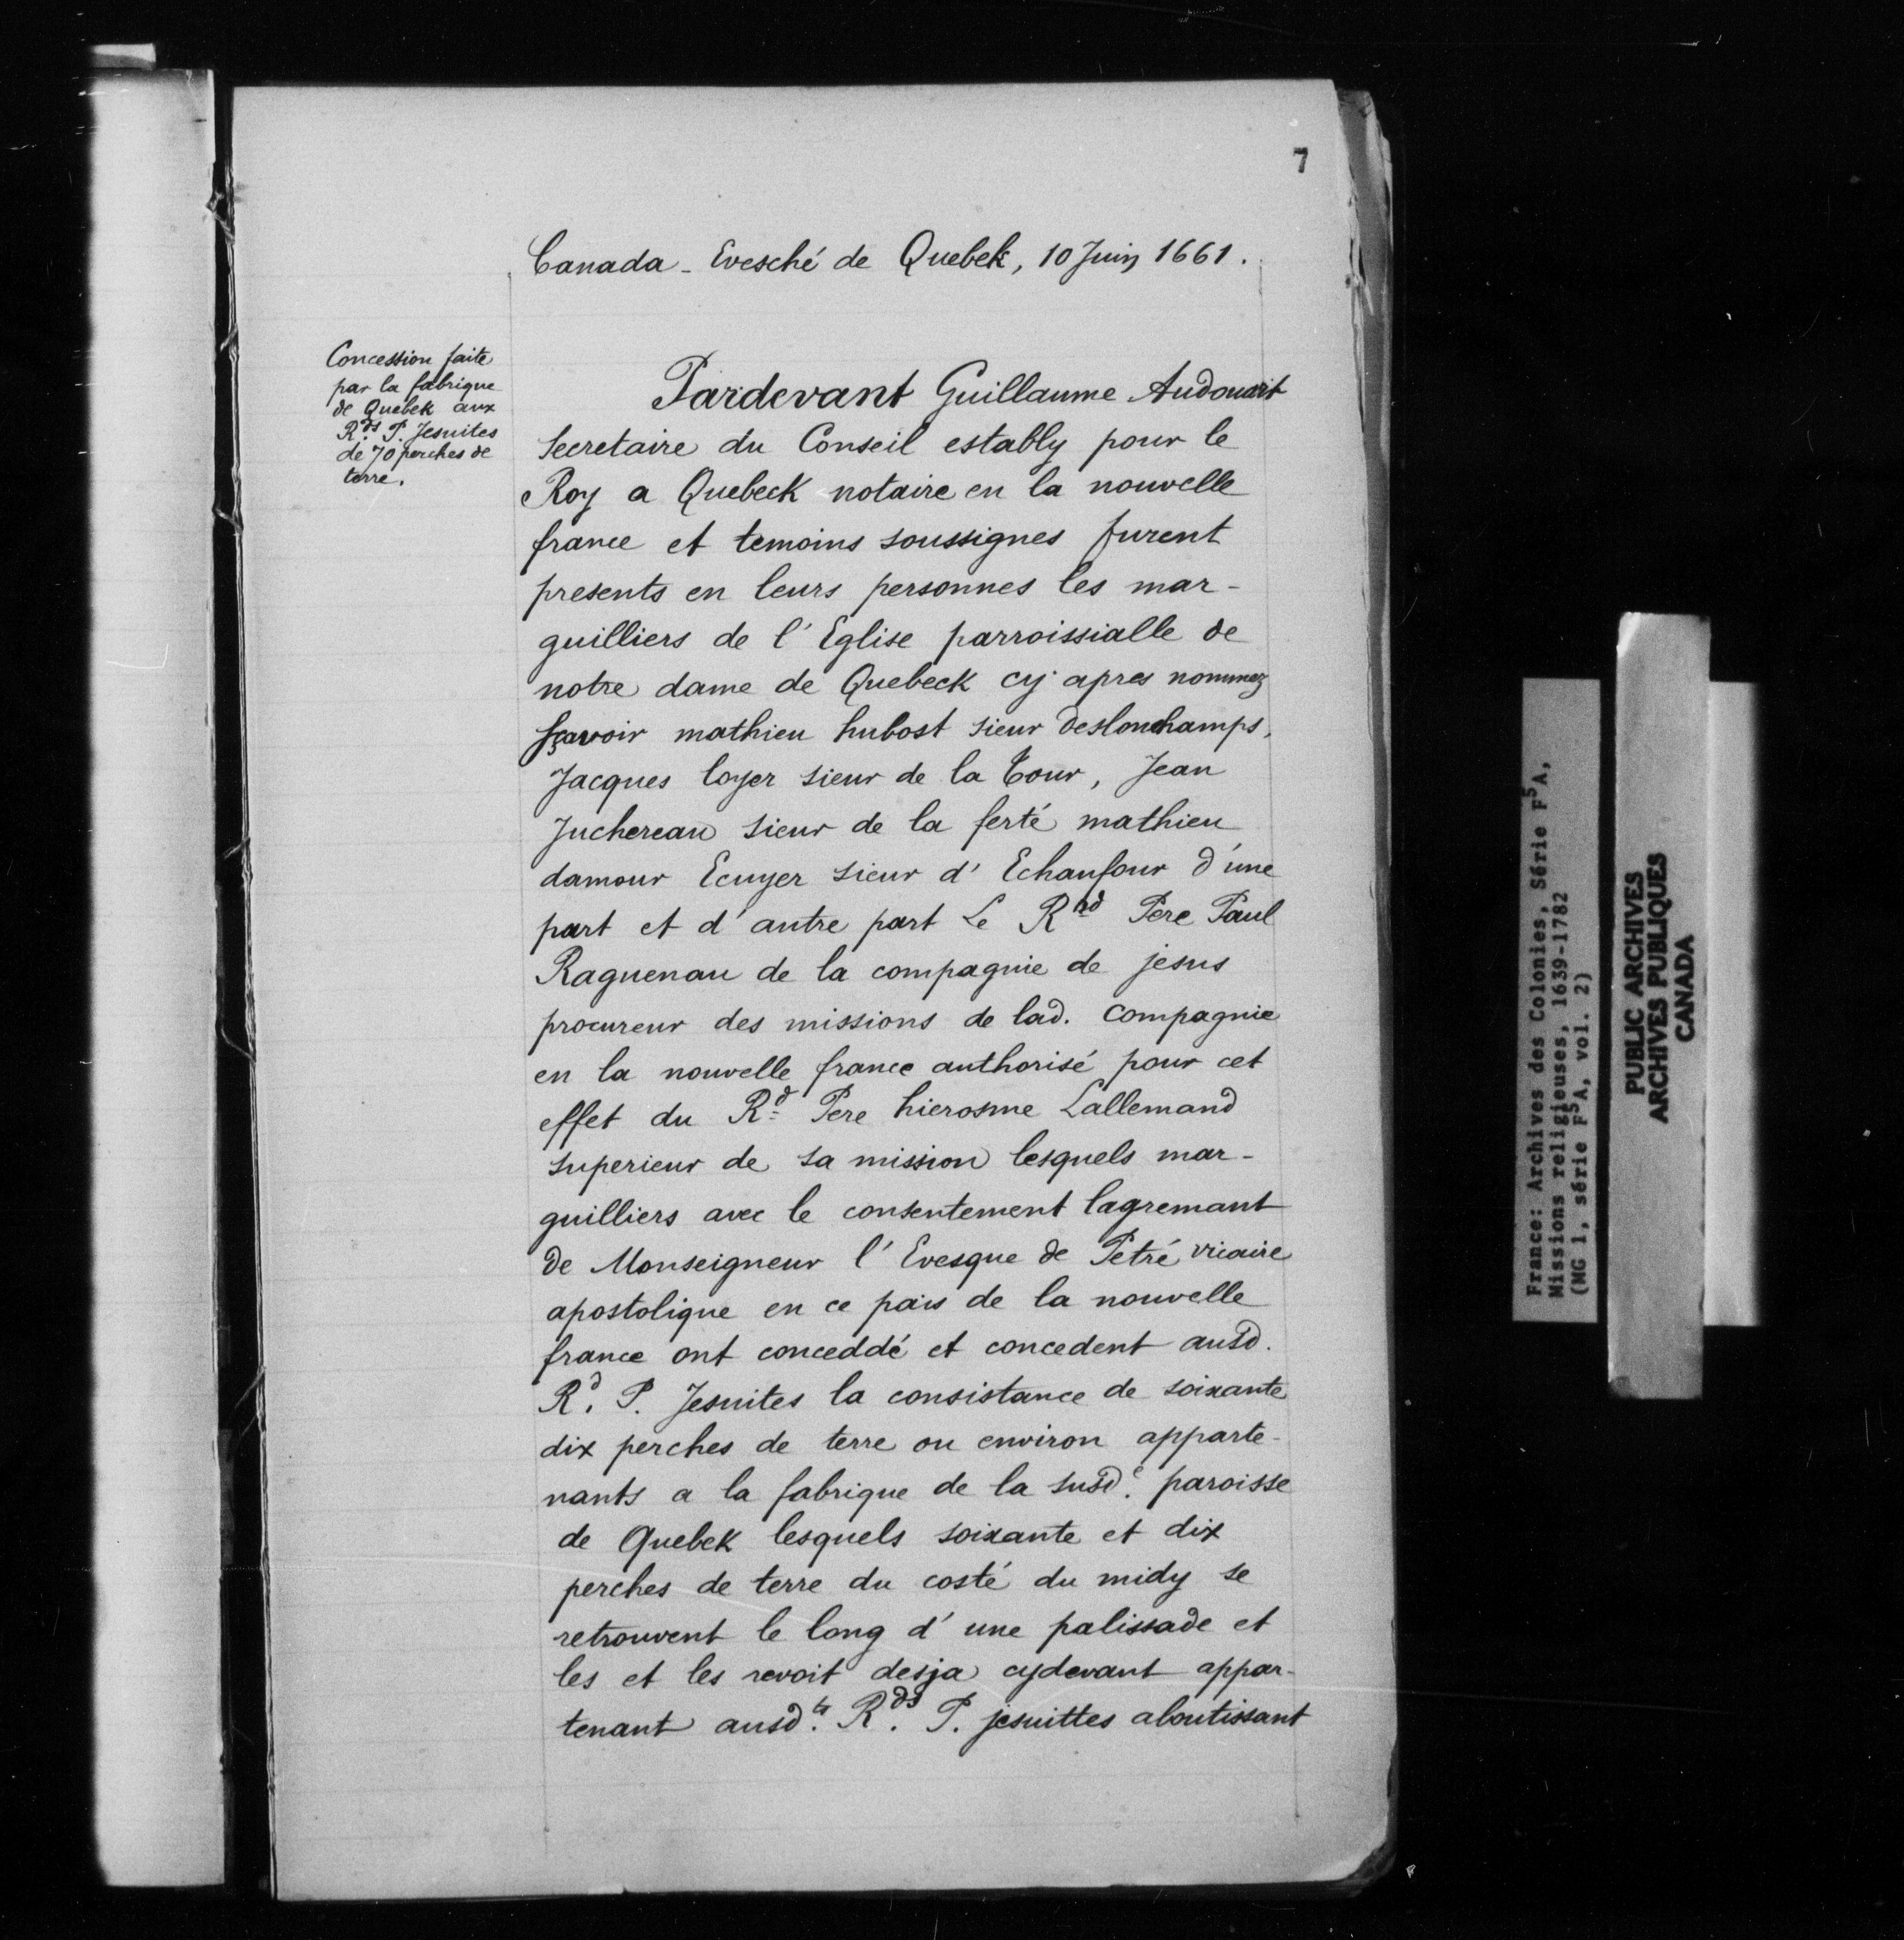 7
Canada - Evesché de Quebek, 10 Juin 1661.
Concession faite
par la fabrique
de Quebek aux
R.ds P. Jesuites
de 70 perches de
terre.
Pardevant Guillaume Audouart
Secretaire du Conseil estably pour le
Roy a Quebeck notaire en la nouvelle
france et temoins soussignes furent
presents en leurs personnes les mar-
guilliers de l'Eglise parroissialle de
notre dame de Quebeck cy apres nommez
sçavoir mathieu hubost sieur deslonchamps,
Jacques loyer sieur de la Tour, Jean
Juchereau sieur de la ferté mathieu
damour Ecuyer sieur d'Echaufour d'une
part et d'autre part Le Rnd Pere Paul
Raguenau de la compagnie de jesus
procureur des missions de lad. compagnie
en la nouvelle france authorisé pour cet
effet du Rd Pere hierosme Lallemand
superieur de sa mission lesquels mar-
guilliers avec le consentement lagremant
de Monseigneur l'Evesque de Petré vicaire
apostolique en ce pais de la nouvelle
france ont conceddé et concedent ausd.
Rd. P. Jesuites la consistance de soixante
dix perches de terre ou environ apparte-
nants a la fabrique de la susd.e paroisse
de Quebek lesquels soixante et dix
perches de terre du costé du midy se
retrouvent le long d'une palissade et
les et les revoit desja cydevant appar-
tenant ausd.ts R.ds P. jesuittes aboutissant
France: Archives des Colonies, Série F5A,
Missions religieuses, 1639-1782
(MG 1, série F5A, vol. 2)
PUBLIC ARCHIVES
ARCHIVES PUBLIQUES
CANADA